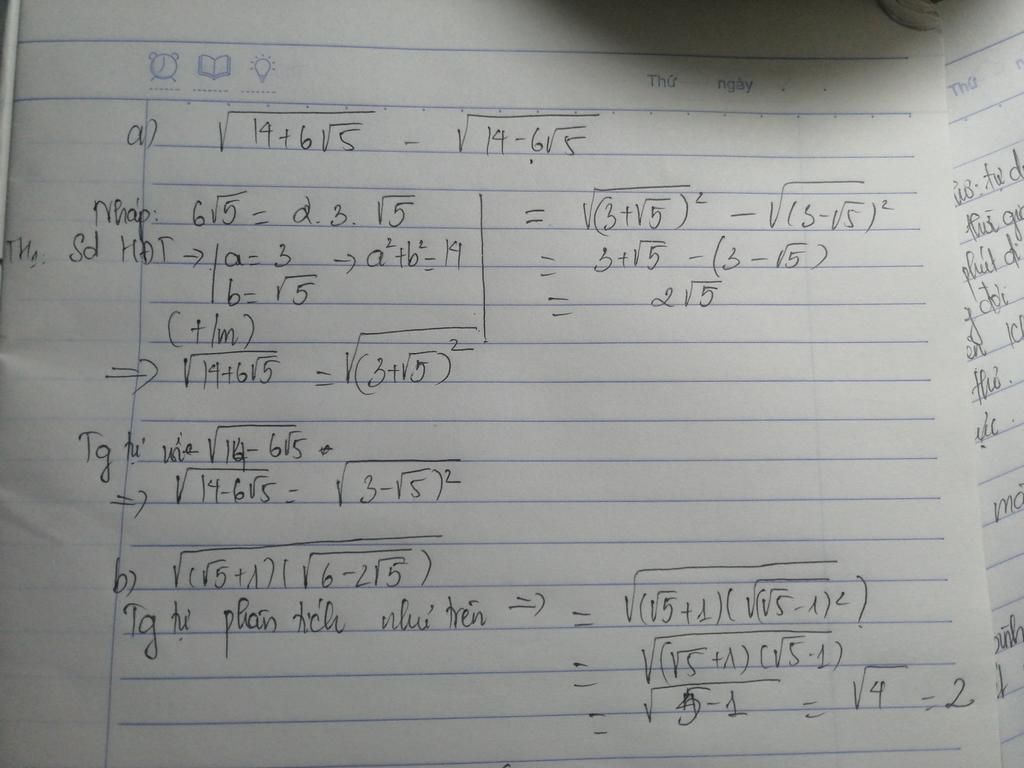 Thứ ngày . .
a) √(14+6√5) - √(14-6√5)
Nháp: 6√5 = 2.3.√5
TH₁: Sd HĐT → a = 3 → a²+b²=14
b = √5
(t/m)
=> √(14+6√5) = √((3+√5)²)
= √((3+√5)²) - √((3-√5)²)
= 3+√5 - (3-√5)
= 2√5
Tg tự với √(14-6√5)
=> √(14-6√5) = √(3-√5)²
b) √((√5+1)(√(6-2√5)))
Tg tự phân tích như trên => = √((√5+1)(√((√5-1)²)))
= √((√5+1)(√5-1))
= √(5-1) = √4 = 2
Thứ